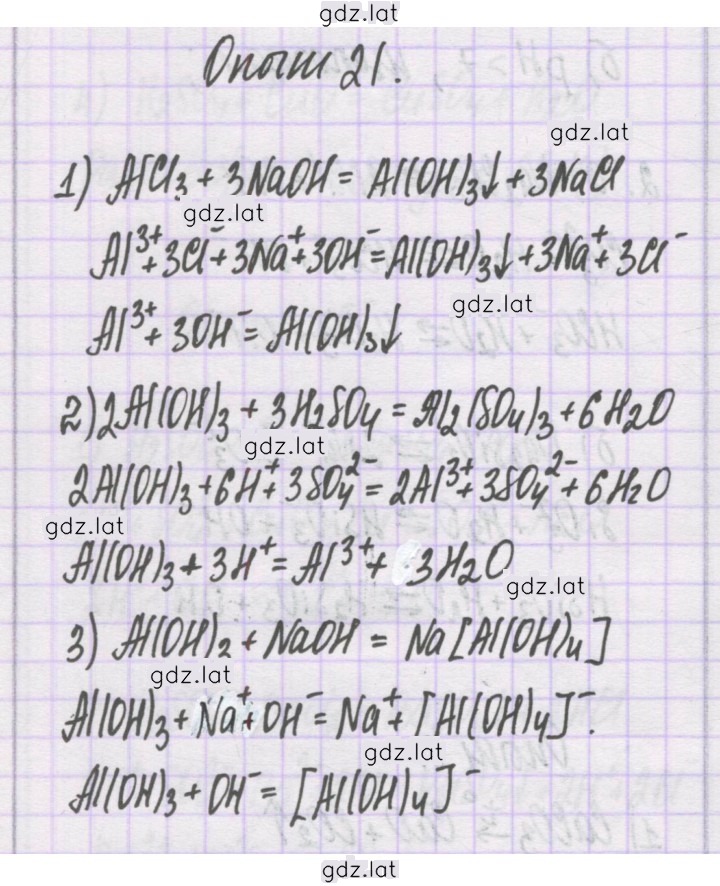 gdz.lat
Опыт 21.
gdz.lat
1) AlCl₃ + 3NaOH = Al(OH)₃↓ + 3NaCl
gdz.lat
Al³⁺ + 3Cl⁻ + 3Na⁺ + 3OH⁻ = Al(OH)₃↓ + 3Na⁺ + 3Cl⁻
gdz.lat
Al³⁺ + 3OH⁻ = Al(OH)₃↓
2) 2Al(OH)₃ + 3H₂SO₄ = Al₂(SO₄)₃ + 6H₂O
gdz.lat
2Al(OH)₃ + 6H⁺ + 3SO₄²⁻ = 2Al³⁺ + 3SO₄²⁻ + 6H₂O
gdz.lat
Al(OH)₃ + 3H⁺ = Al³⁺ + 3H₂O
gdz.lat
3) Al(OH)₂ + NaOH = Na[Al(OH)₄]
gdz.lat
Al(OH)₃ + Na⁺ + OH⁻ = Na⁺ + [Al(OH)₄]⁻.
gdz.lat
Al(OH)₃ + OH⁻ = [Al(OH)₄]⁻
gdz.lat